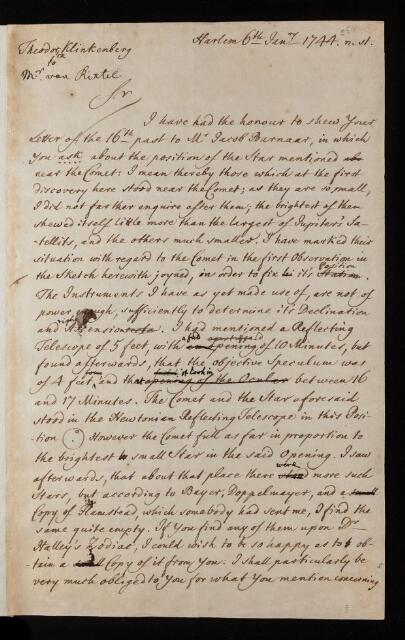 Harlem 6th Jany 1744. n. st.
Theodor Klinkenberg
to
Mr. van Rixtel
Sr
I have had the honour to shew Your
Letter of the 16th past to Mr Jacob Barnaar, in which
You ask about the position of the Star mentioned
near the Comet: I mean thereby those which at the first
discovery here stood near the Comet; as they are so small,
I did not farther enquire after them; the brightest of them
shewed itself little more than the largest of Jupiters Sa-
tellits, and the others much smaller. I have marked their
situation with regard to the Comet in the first Observation in
the Sketch herewith joyned, in order to fix its Position
The Instruments I have as yet made use of, are not of
power enough, sufficiently to determine its Declination
and right Ascension. I had mentioned a Reflecting
Telescope of 5 feet, with an opening of 10 Minutes, but
found afterwards, that the objective Speculum was
of 4 feet, and the opening of the Ocular between 16
and 17 Minutes. The Comet and the Star aforesaid
stood in the Newtonian Reflecting Telescope in this Posi-
tion However the Comet full as far in proportion to
the brightest small Star in the said Opening. I saw
afterwards, that about that place there were more such
Stars, but according to Bayer, Doppelmayer, and a small
Copy of Flamstead, which somebody had sent me, I find the
same quite empty. If You find any of them upon Dr
Halley's Zodiac, I could wish to be so happy as to ob-
tain a Copy of it from You. I shall particularly be
very much obliged to You for what You mention concerning